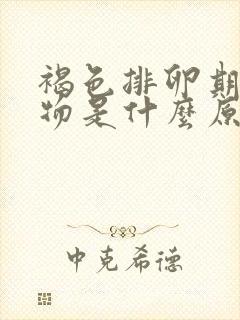 褐色排卵期
物是什麼原
中克希德